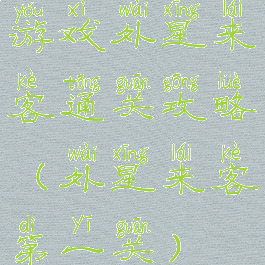 yóu xì wài xīng lái
游戏外星来
kè tōng guān gōng lüè
客通关攻略
wài xīng lái kè
（外星来客
dì yī guān
第一关）